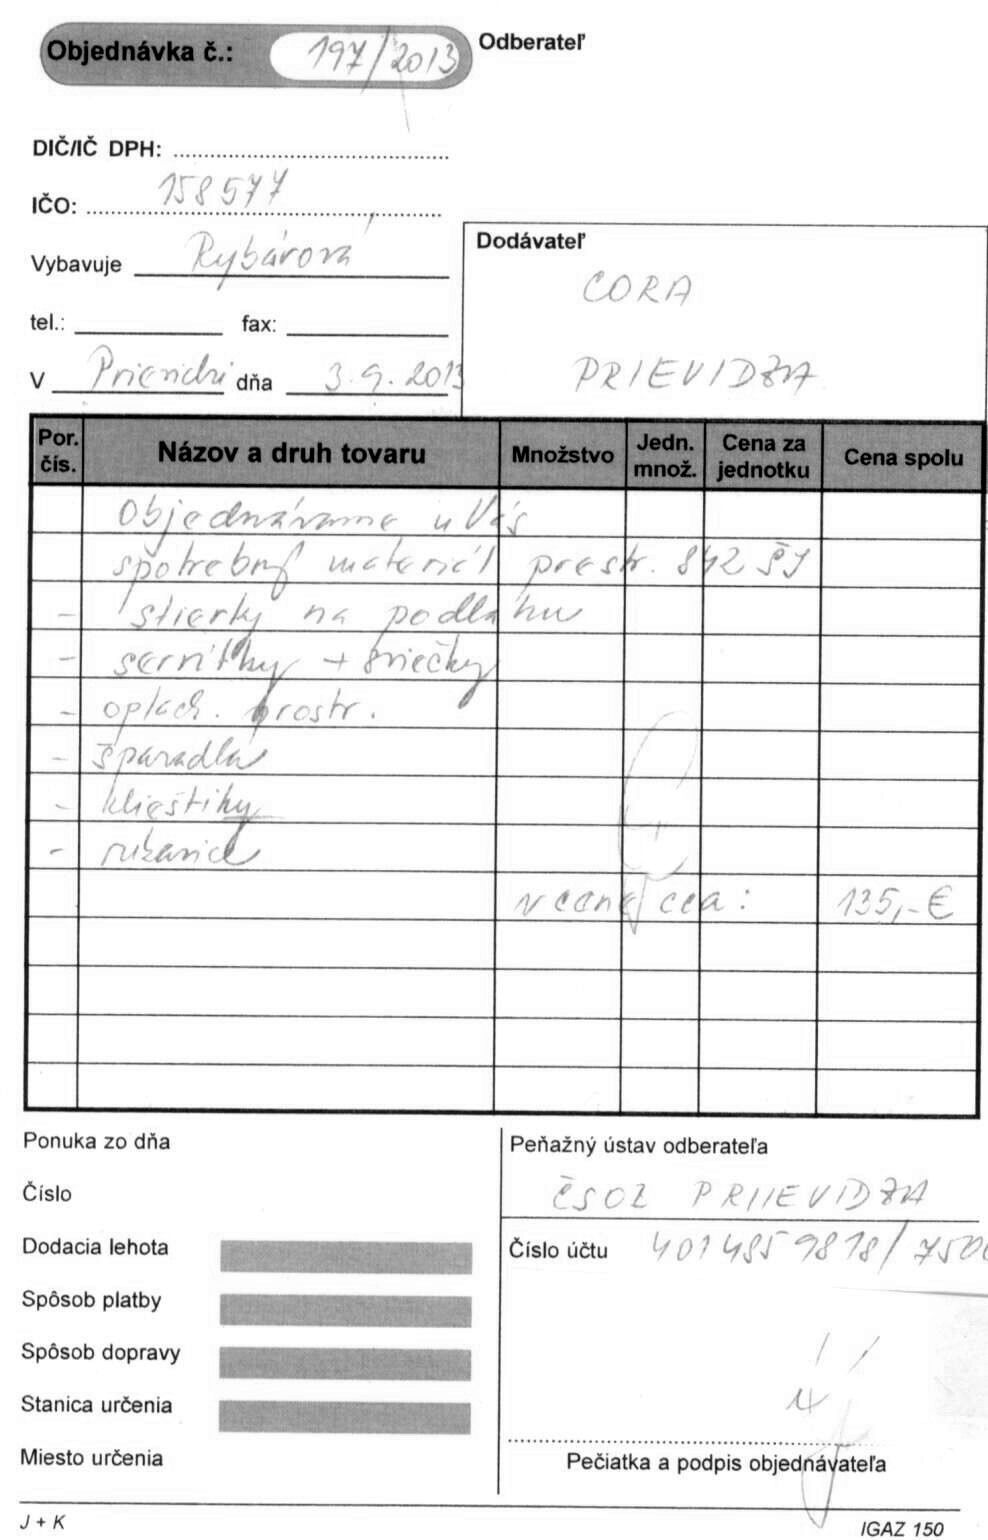 Objednávka č.: 197/2013
Odberateľ
DIČ/IČ DPH:
IČO: 158577
Vybavuje Rybárová
tel.: fax:
V Prievidzi dňa 3.9.2013
Dodávateľ
CORA
PRIEVIDZA
Por. čís. Názov a druh tovaru Množstvo Jedn. množ. Cena za jednotku Cena spolu
Objednávame u Vás
spotrebný materiál prostr. 842 ŠJ
- stierky na podlahu
- servítky + sviečky
- oplach. prostr.
- šparadlá
- klieštiky
- rukavice
v cene cca: 135,-€
Ponuka zo dňa
Číslo
Dodacia lehota
Spôsob platby
Spôsob dopravy
Stanica určenia
Miesto určenia
Peňažný ústav odberateľa
ČSOB PRIEVIDZA
Číslo účtu 4014859818/7500
Pečiatka a podpis objednávateľa
J + K
IGAZ 150